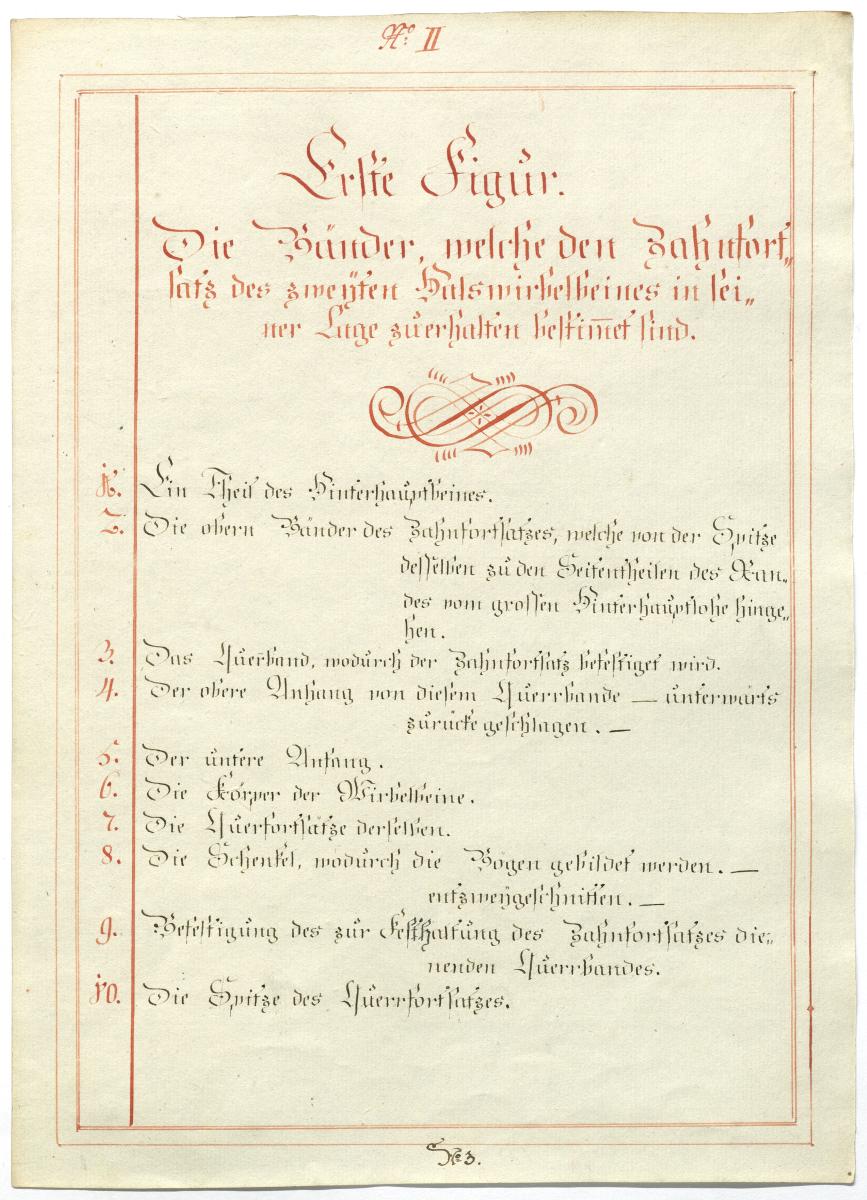 No. II
Erste Figur.
Die Bänder, welche den Zahnfort„
satz des zweÿten Halswirbelbeines in sei„
ner Lage zu erhalten bestim̅et sind.
1. Ein Theil des Hinterhauptbeines.
2. Die obern Bänder des Zahnfortsatzes, welche von der Spitze
desselben zu den Seitentheilen des Ran„
des vom grossen Hinterhauptlohe hinge„
hen.
3. Das Querband, wodurch der Zahnfortsatz befestiget wird.
4. Der obere Anhang von diesem Querrbande — unterwärts
zurücke geschlagen. —
5. Der untere Anhang.
6. Die Körper der Wirbelbeine.
7. Die Querfortsätze derselben.
8. Die Schenkel, wodurch die Bögen gebildet werden. —
entzweÿgeschnitten. —
9. Befestigung des zur Festhaltung des Zahnfortsatzes die„
nenden Querrbandes.
10. Die Spitze des Querrfortsatzes.
No 3.